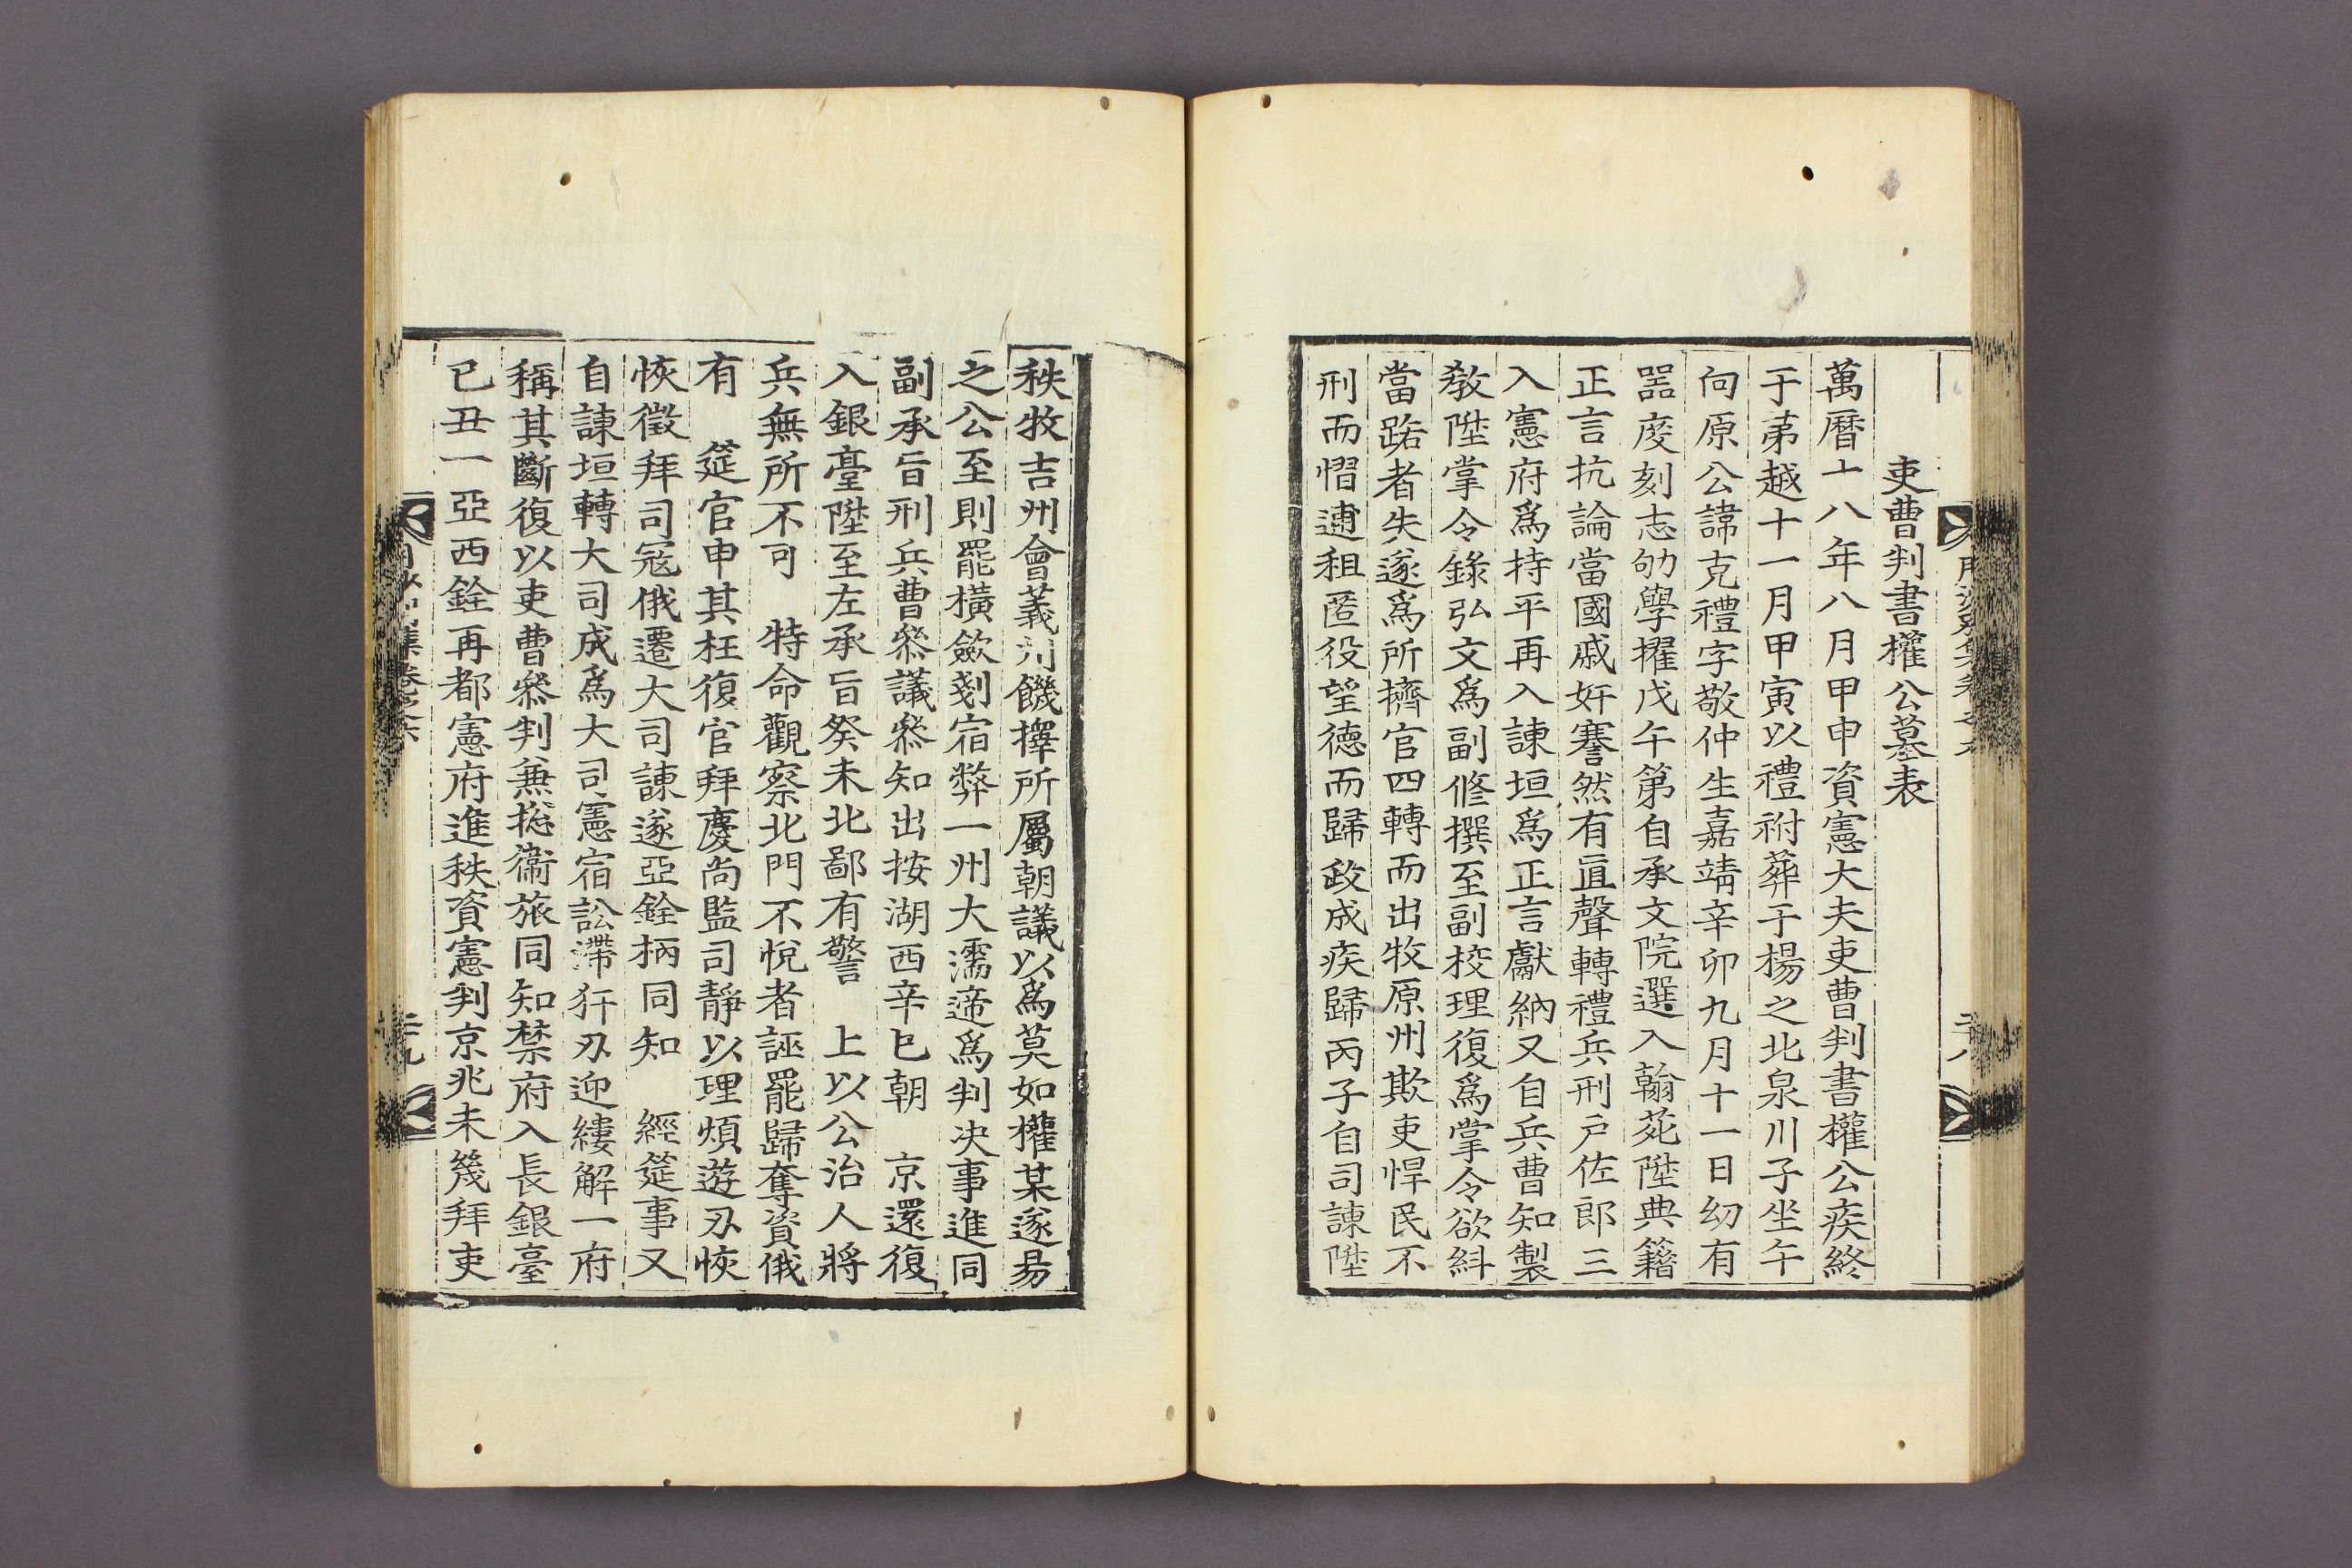 吏曹判書權公墓表
萬曆十八年八月甲申資憲大夫吏曹判書權公疾終
于苐越十一月甲寅以禮祔葬于楊之北泉川子坐午
向原公諱克禮字敬仲生嘉靖辛卯九月十一日幼有
器度刻志劬學擢戊午第自承文院選入翰苑陞典籍
正言抗論當國戚奸謇然有直聲轉禮兵刑戶佐郎三
入憲府爲持平再入諫垣爲正言獻納又自兵曹知製
敎陞掌令錄弘文爲副修撰至副校理復爲掌令欲糾
當路者失遂爲所擠官四轉而出牧原州欺吏悍民不
刑而慴逋租匿役望德而歸政成疾歸丙子自司諫陞
秩牧吉州會義州饑擇所屬朝議以爲莫如權某遂昜
之公至則罷橫斂剗宿弊一州大濡遆爲判决事進同
副承旨刑兵曹叅議叅知出按湖西辛巳朝 京還復
入銀臺陞至左承旨癸未北鄙有警 上以公治人將
兵無所不可 特命觀察北門不悅者誣罷歸奪資俄
有 筵官申其枉復官拜慶尙監司靜以理煩遊刃恢
恢徵拜司寇俄遷大司諫遂亞銓柄同知 經筵事又
自諫垣轉大司成爲大司憲宿訟滯犴刃迎縷解一府
稱其斷復以吏曹叅判兼揔衞旅同知禁府入長銀臺
已丑一亞西銓再都憲府進秩資憲判京兆未幾拜吏